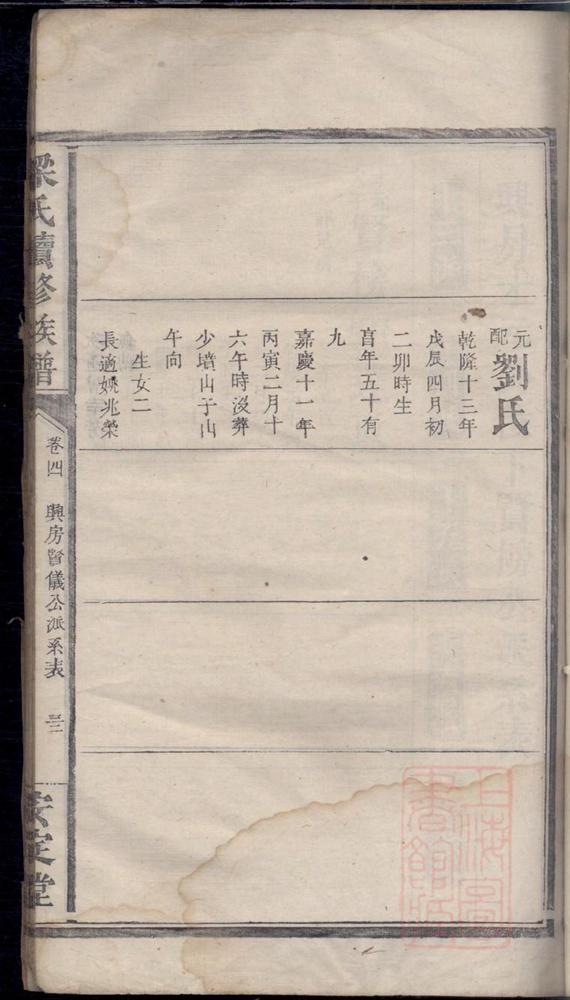 元配劉氏
乾隆十三年
戊辰四月初
二卯時生
享年五十有
九
嘉慶十一年
丙寅二月十
六午時沒葬
少墳山子山
午向
生女二
長適姚兆榮
梁氏續修族譜
卷四
興房晉儀公派系表
安定堂
上海圖書館藏